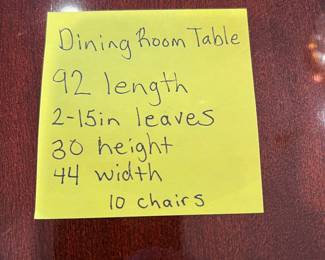 Dining Room Table
92 length
2-15in leaves
30 height
44 width
10 chairs